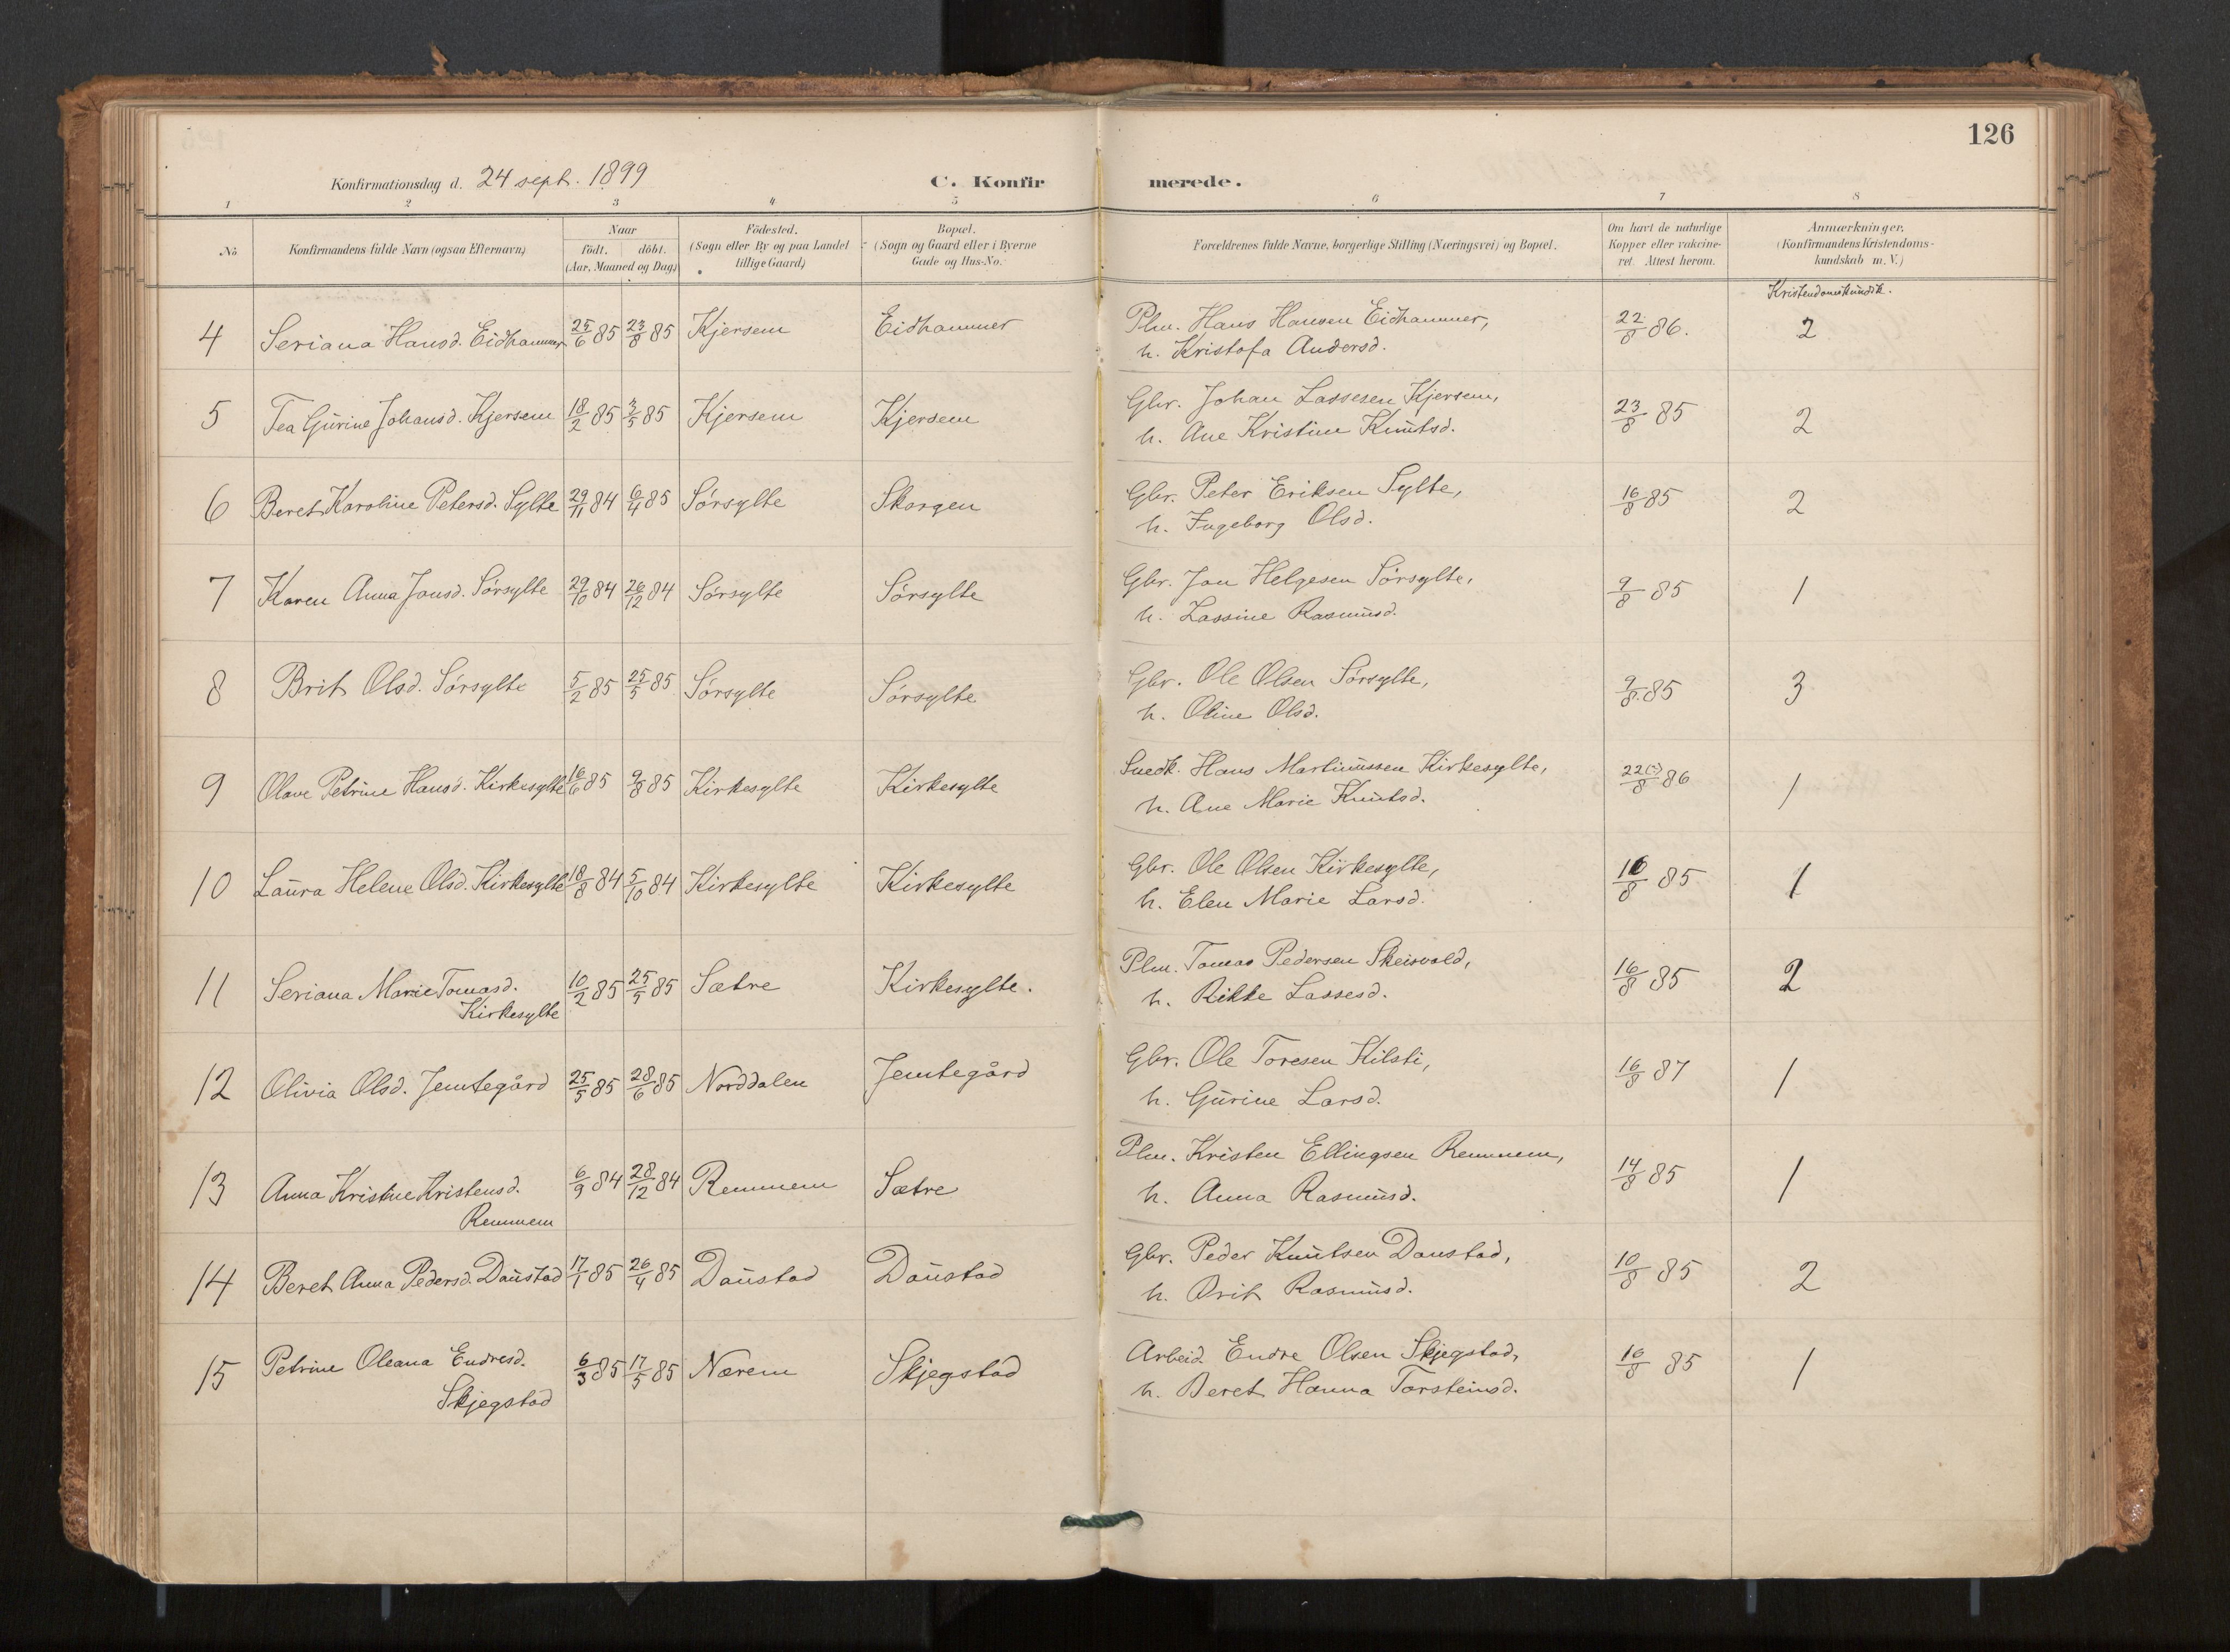 126
Konfirmationsdag d. 24 sept. 1899
C. Konfirmerede.
1 2 3 4 5 6 7 8
No
Konfirmandens fulde Navn (ogsaa Efternavn)
Naar
födt. döbt.
(Aar, Maaned og Dag)
Födested.
(Sogn eller By og paa Landet
tillige Gaard)
Bopæl.
(Sogn og Gaard eller i Byerne
Gade og Hus-No.
Forældrenes fulde Navne, borgerlige Stilling (Næringsvei) og Bopæl.
Om havt de naturlige
Kopper eller vakcine-
ret. Attest herom.
Anmærkninger.
(Konfirmandens Kristendoms-
kundskab m. V.)
Kristendomskundsk.
4 Seriana Hansd. Eidhammer 25/6 85 23/8 85 Kjersem Eidhammer Plm. Hans Hansen Eidhammer, 22/8 86. 2
h. Kristofa Andersd.
5 Tea Gurine Johansd. Kjersem 18/2 85 3/5 85 Kjersem Kjersem Gbr. Johan Lassesen Kjersem, 23/8 85 2
h. Ane Kristine Knutsd.
6 Beret Karoline Petersd. Sylte 29/11 84 6/4 85 Sørsylte Skorgen Gbr. Peter Eriksen Sylte, 16/8 85 2
h. Ingeborg Olsd.
7 Karen Anna Jonsd. Sørsylte 29/10 84 26/12 84 Sørsylte Sørsylte Gbr. Jon Helgesen Sørsylte, 9/8 85 1
h. Lassine Rasmusd.
8 Brit Olsd. Sørsylte 5/2 85 25/5 85 Sørsylte Sørsylte Gbr. Ole Olsen Sørsylte, 9/8 85 3
h. Oline Olsd.
9 Olave Petrine Hansd. Kirkesylte 16/6 85 9/8 85 Kirkesylte Kirkesylte Snedk. Hans Martinussen Kirkesylte, 22(?)/8 86 1
h. Ane Marie Knutsd.
10 Laura Helene Olsd. Kirkesylte 18/8 84 5/10 84 Kirkesylte Kirkesylte Gbr. Ole Olsen Kirkesylte, 16/8 85 1
h. Elen Marie Larsd.
11 Seriana Marie Tomasd. 10/2 85 25/5 85 Sætre Kirkesylte. Plm. Tomas Pedersen Skeisvold, 16/8 85 2
Kirkesylte h. Rikke Lassesd.
12 Olivia Olsd. Jemtegård 25/5 85 28/6 85 Norddalen Jemtegård Gbr. Ole Toresen Kilsti, 16/8 87 1
h. Gurine Larsd.
13 Anna Kristine Kristensd. 6/9 84 28/12 84 Remmem Sætre Plm. Kristen Ellingsen Remmem, 14/8 85 1
Remmem h. Anna Rasmusd.
14 Beret Anna Pedersd. Daustad 17/1 85 26/4 85 Daustad Daustad Gbr. Peder Knutsen Daustad, 10/8 85 2
h. Brit Rasmusd.
15 Petrine Oleana Endresd. 6/3 85 17/5 85 Nærem Skjegstad Arbeid. Endre Olsen Skjegstad, 16/8 85 1
Skjegstad h. Beret Hanna Torsteinsd.